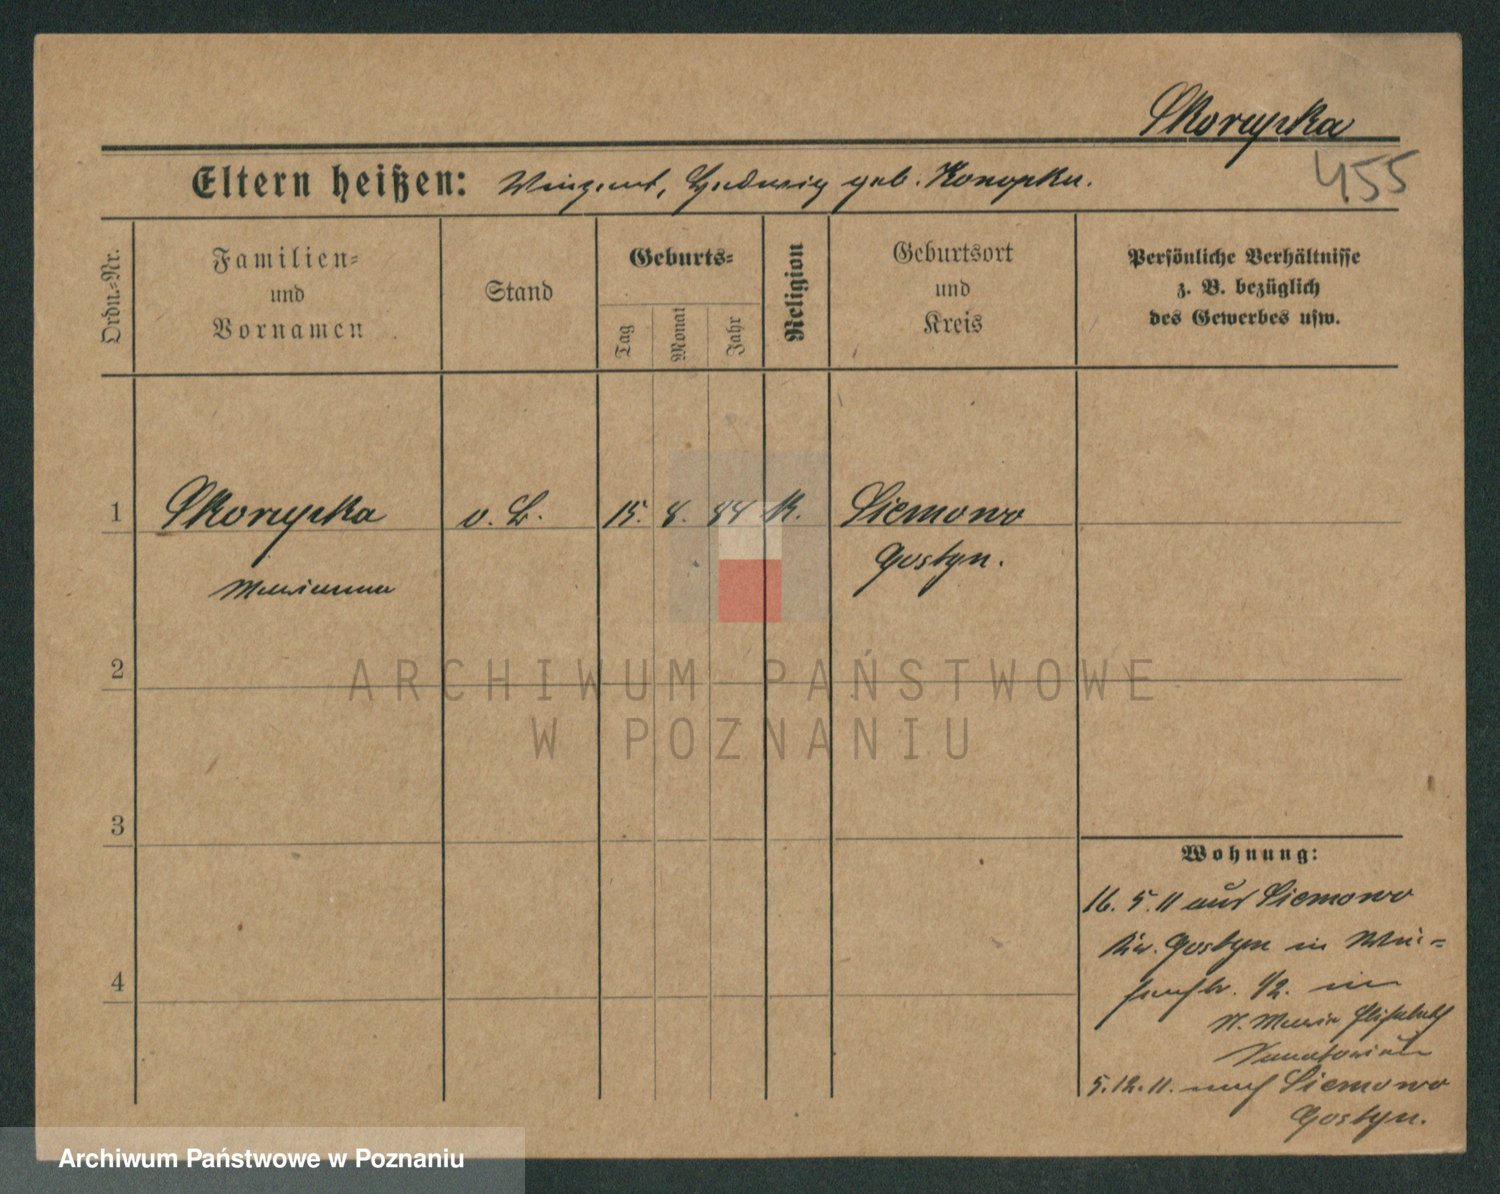 Skorupka
455
Eltern heißen: Vinzent, Hedwig geb. Konopka.
Ordn.-Nr.
Familien-
und
Vornamen
Stand
Geburts-
Tag
Monat
Jahr
Religion
Geburtsort
und
Kreis
Persönliche Verhältnisse
z. B. bezüglich
des Gewerbes usw.
1 Skorupka o. B. 15. 8. 84 K. Siemowo
Marianna Gostyn.
2
ARCHIWUM PAŃSTWOWE
W POZNANIU
3
Wohnung:
16. 5. 11 aus Siemowo
Kr. Gostyn in
1/2. in
St. Maria Elisabeth
Sanatorium
4
5. 12. 11. nach Siemowo
Gostyn.
Archiwum Państwowe w Poznaniu